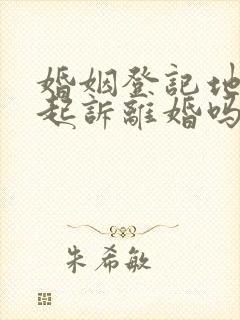 婚姻登記地
起訴離婚嗎
朱希敏